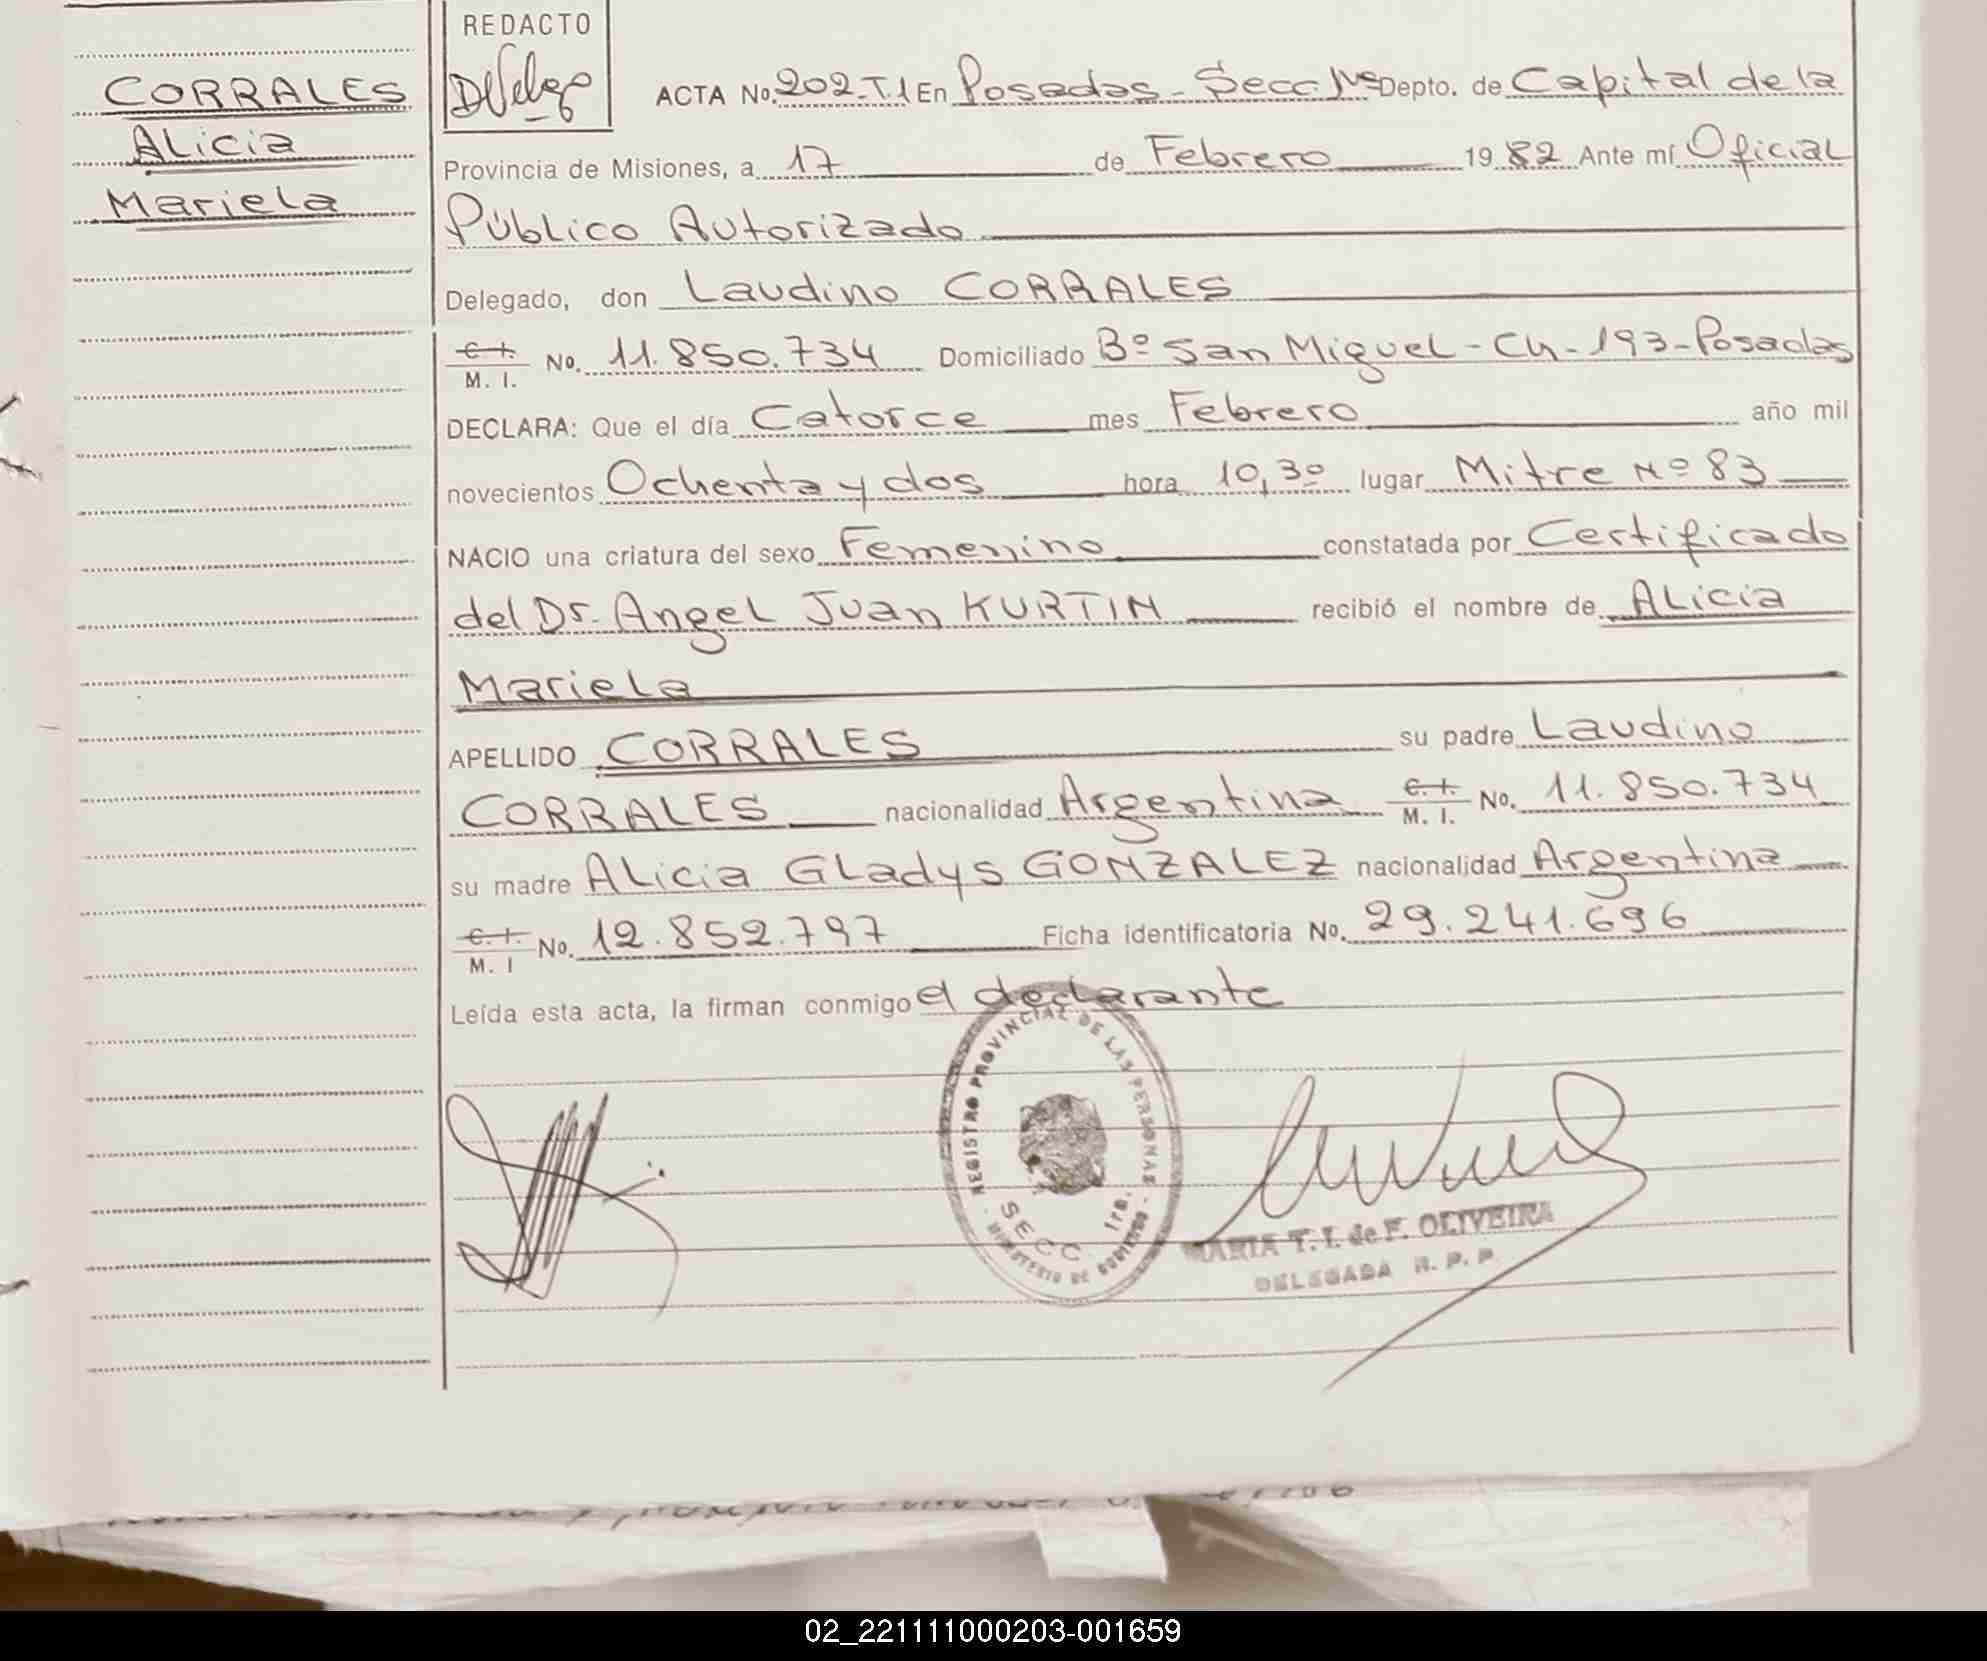 CORRALES
Alicia
Mariela
REDACTO
ACTA No. 202-T.1 En Posadas - Secc. 1ra Depto. de Capital de la
Provincia de Misiones, a 17 de Febrero 1982 Ante mí Oficial
Público Autorizado
Delegado, don Laudino CORRALES
C.I. M. I. No. 11.850.734 Domiciliado Bº San Miguel - Ch - 193 - Posadas
DECLARA: Que el día Catorce mes Febrero año mil
novecientos Ochenta y dos hora 10,30 lugar Mitre Nº 83
NACIO una criatura del sexo Femenino constatada por Certificado
del Dr. Angel Juan KURTIN recibió el nombre de Alicia
Mariela
APELLIDO CORRALES su padre Laudino
CORRALES nacionalidad Argentina C.I. M. I. No. 11.850.734
su madre Alicia Gladys GONZALEZ nacionalidad Argentina
C.I. M. I No. 12.852.797 Ficha identificatoria No. 29.241.696
Leída esta acta, la firman conmigo el declarante
REGISTRO PROVINCIAL DE LAS PERSONAS
SECC. 1ra.
MINISTERIO DE GOBIERNO
MARIA T. I. de F. OLIVEIRA
DELEGADA R. P. P.
02_221111000203-001659